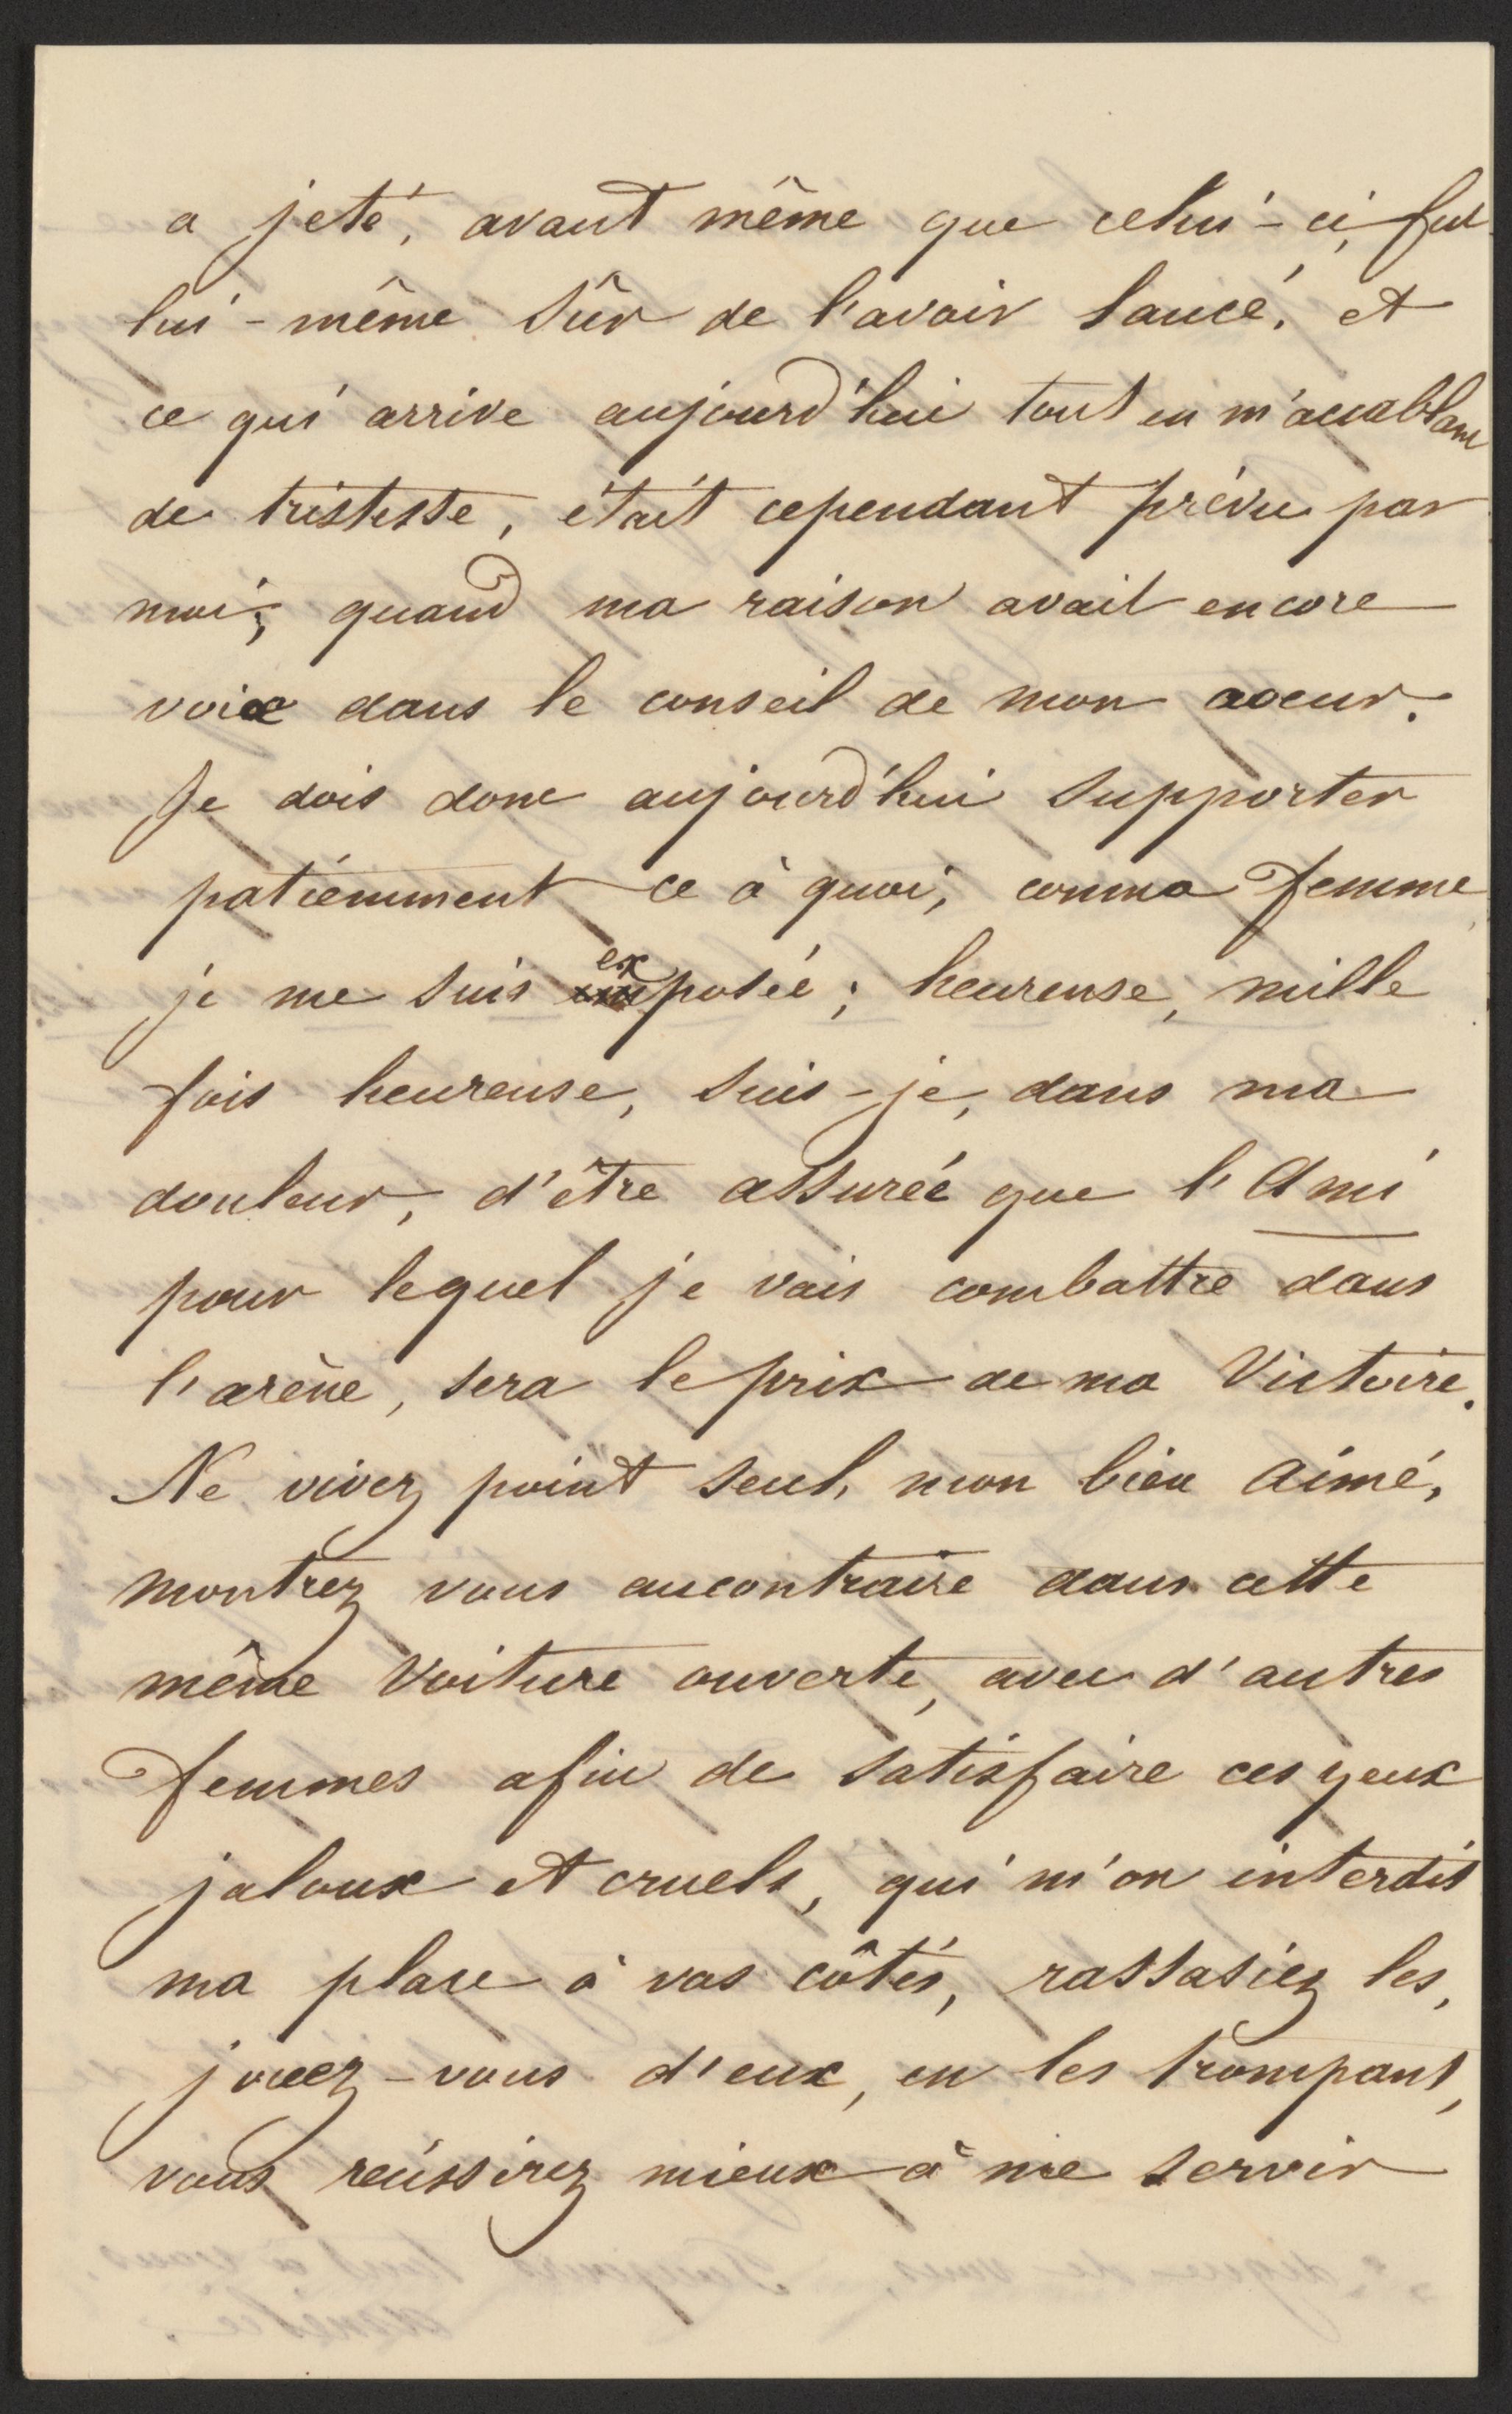 a jeté, avant même que celui-ci, fut
lui-même sûr de l'avoir lancé, et
ce qui arrive aujourd'hui tout en m'accablant
de tristesse, était cependant prévu par
moi, quand ma raison avait encore
voix dans le conseil de mon coeur.
Je dois donc aujourd'hui supporter
patiemment ce à quoi, comme femme,
je me suis exposée; heureuse, mille
fois heureuse, suis-je, dans ma
douleur, d'être assurée que l'Ami
pour lequel je vais combattre dans
l'arène, sera le prix de ma Victoire.
Ne vivez point seul, mon bien aimé,
montrez vous aucontraire dans cette
même voiture ouverte, avec d'autres
femmes afin de satisfaire ces yeux
jaloux et cruels, qui m'on interdit
ma place à vos côtés, rassasiez les,
jouez-vous d'eux, en les trompant,
vous réussirez mieux à me servir